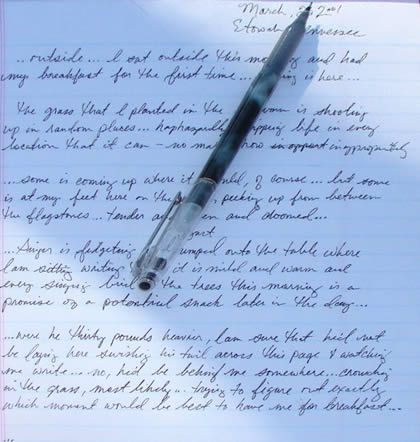 March, 2001
Etowah, Tennessee
...outside... I sat outside this mo and had
my breakfast for the first time... ing is here...
the grass that I planted in the umn is shooting
up in random places... haphazardly pping life in every
location that it can - no ma how inappropriately
...some is coming up where it ould, of course... but some
is at my feet here on the , peeking up from between
the flagstones... tender a en and doomed...
...Singer is fidgeting umped onto the table where
I am sitting writing it is mild and warm and
every singing bird the trees this morning is a
promise of a potential snack later in the day...
...were he thirty pounds heavier, I am sure that he'd not
be laying here swishing his tail across this page & watching
me write... no, he'd be behind me somewhere... crouching
in the grass, most likely... trying to figure out exactly
which moment would be best to have me for breakfast...
...